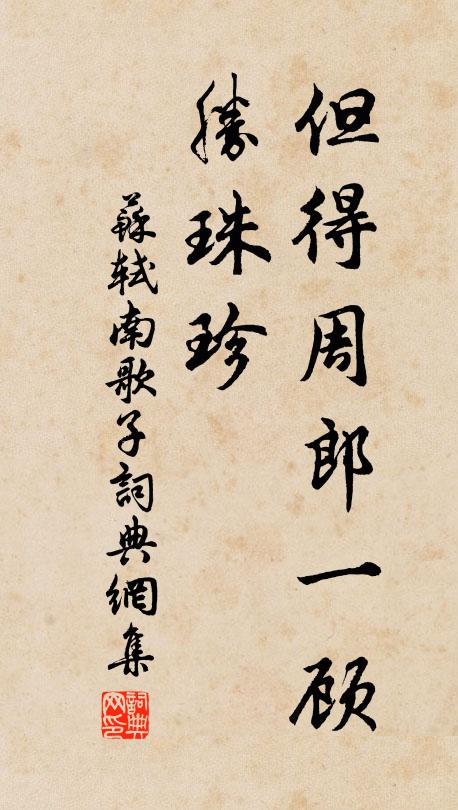 但得周郎一顾
勝珠珍
蘇軾南歌子詞典網集
詞典网印